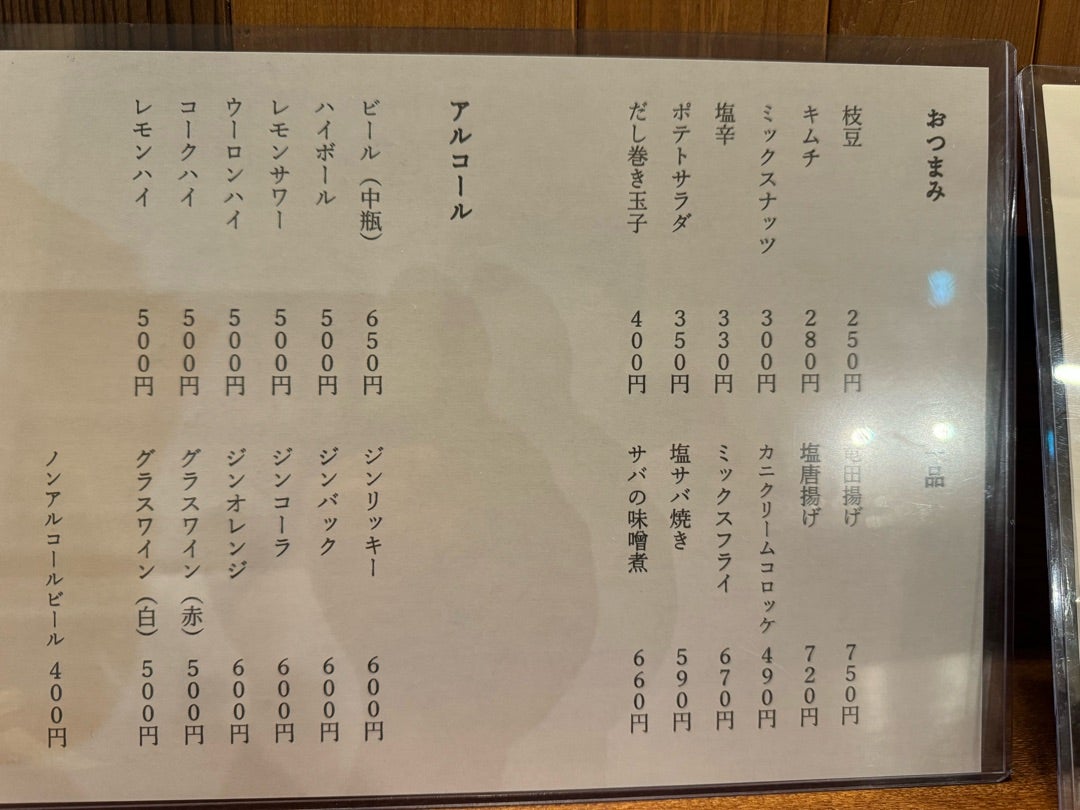 おつまみ
枝豆 250円
キムチ 280円
ミックスナッツ 300円
塩辛 330円
ポテトサラダ 350円
だし巻き玉子 400円
品
竜田揚げ 750円
塩唐揚げ 720円
カニクリームコロッケ 490円
ミックスフライ 670円
塩サバ焼き 590円
サバの味噌煮 660円
アルコール
ビール（中瓶） 650円
ハイボール 500円
レモンサワー 500円
ウーロンハイ 500円
コークハイ 500円
レモンハイ 500円
ジンリッキー 600円
ジンバック 600円
ジンコーラ 600円
ジンオレンジ 600円
グラスワイン（赤） 500円
グラスワイン（白） 500円
ノンアルコールビール 400円